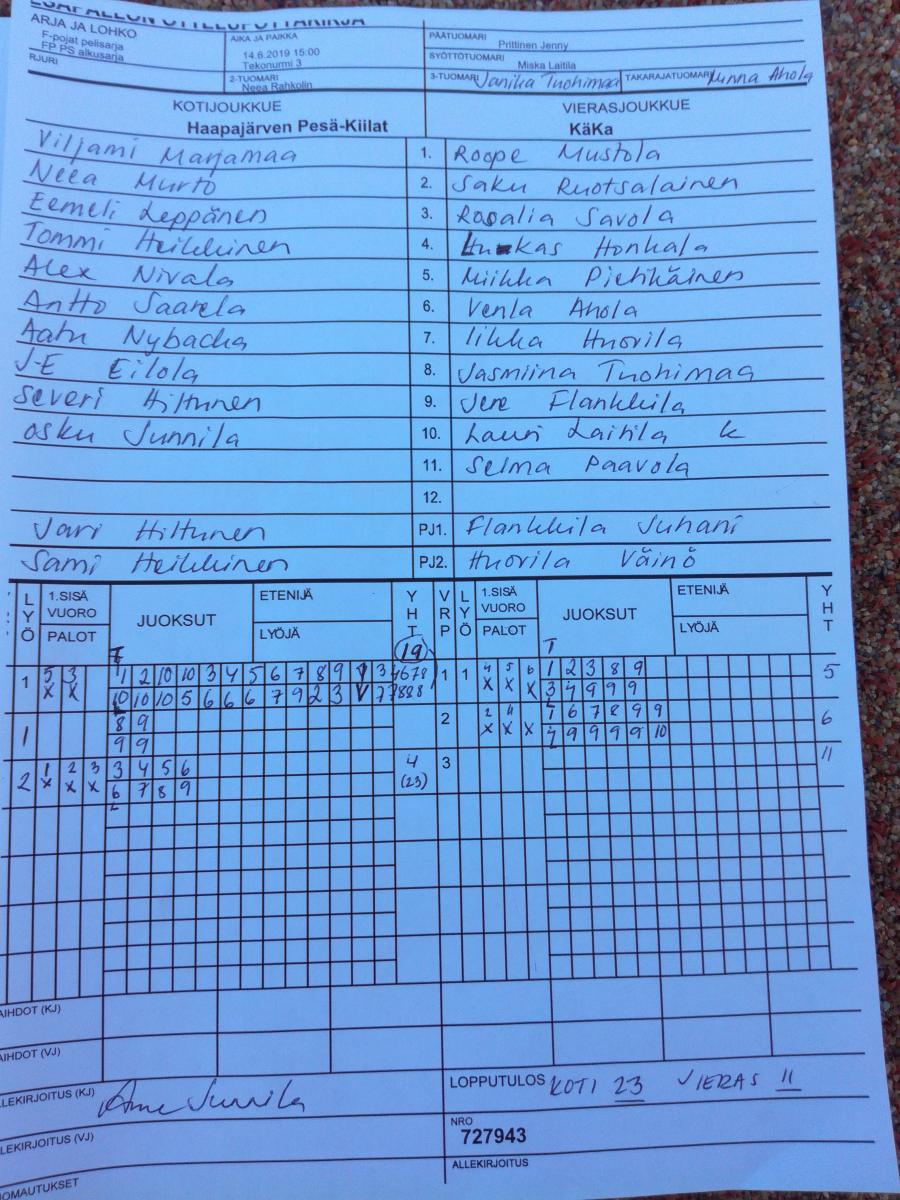 ARJA JA LOHKO
F-pojat pelisarja
FP PS alkusarja
RJURI
AIKA JA PAIKKA
14.6.2019 15:00
Tekonurmi 3
2-TUOMARI
Neea Rahkolin
PÄÄTUOMARI
Prittinen Jenny
SYÖTTÖTUOMARI
Miska Laitila
3-TUOMARI Janika Tuohimaa TAKARAJATUOMARI Minna Ahola
KOTIJOUKKUE VIERASJOUKKUE
Haapajärven Pesä-Kiilat KäKa
Viljami Marjamaa 1. Roope Mustola
Neea Murto 2. Saku Ruotsalainen
Eemeli Leppänen 3. Rosalia Savola
Tommi Heikkinen 4. Honkala
Alex Nivala 5. Miikka Pietikäinen
Antto Saarela 6. Venla Ahola
Aatu Nybacka 7. Iikka Huovila
J-E Eilola 8. Jasmiina Tuohimaa
Severi Hiltunen 9. Jere Flankkila
Osku Junnila 10. Lauri Laitila K
11. Selma Paavola
12.
Jari Hiltunen PJ1. Flankkila Juhani
Sami Heikkinen PJ2. Huovila Väinö
LYÖ 1.SISÄ VUORO PALOT JUOKSUT ETENIJÄ LYÖJÄ YHT VRP LYÖ 1.SISÄ VUORO PALOT JUOKSUT ETENIJÄ LYÖJÄ YHT
19
1 5 3 1 2 10 10 3 4 5 6 7 8 9 1 3 4678 1 1 4 5 6 1 2 3 8 9 5
X X 10 10 10 5 6 6 6 7 9 2 3 V 7 7888 X X X 3 7 9 9 9
1 8 9 2 2 4 1 6 7 8 9 9 6
9 9 X X X 7 9 9 9 9 10
2 1 2 3 3 4 5 6 4 3 11
X X X 6 7 8 9 (23)
AIHDOT (KJ)
AIHDOT (VJ)
LLEKIRJOITUS (KJ) Junnila
LLEKIRJOITUS (VJ)
UOMAUTUKSET
LOPPUTULOS KOTI 23 VIERAS 11
NRO
727943
ALLEKIRJOITUS